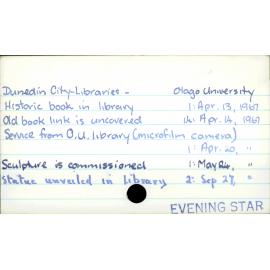 Dunedin City Libraries - Otago University
Historic book in library 1: Apr. 13, 1967
Old book link is uncovered 14: Apr. 14, 1967
Service from O.U. library (microfilm camera)
1: Apr. 20, "
Sculpture is commissioned 1: May 24, "
Statue unveiled in Library 2: Sep 27, "
EVENING STAR